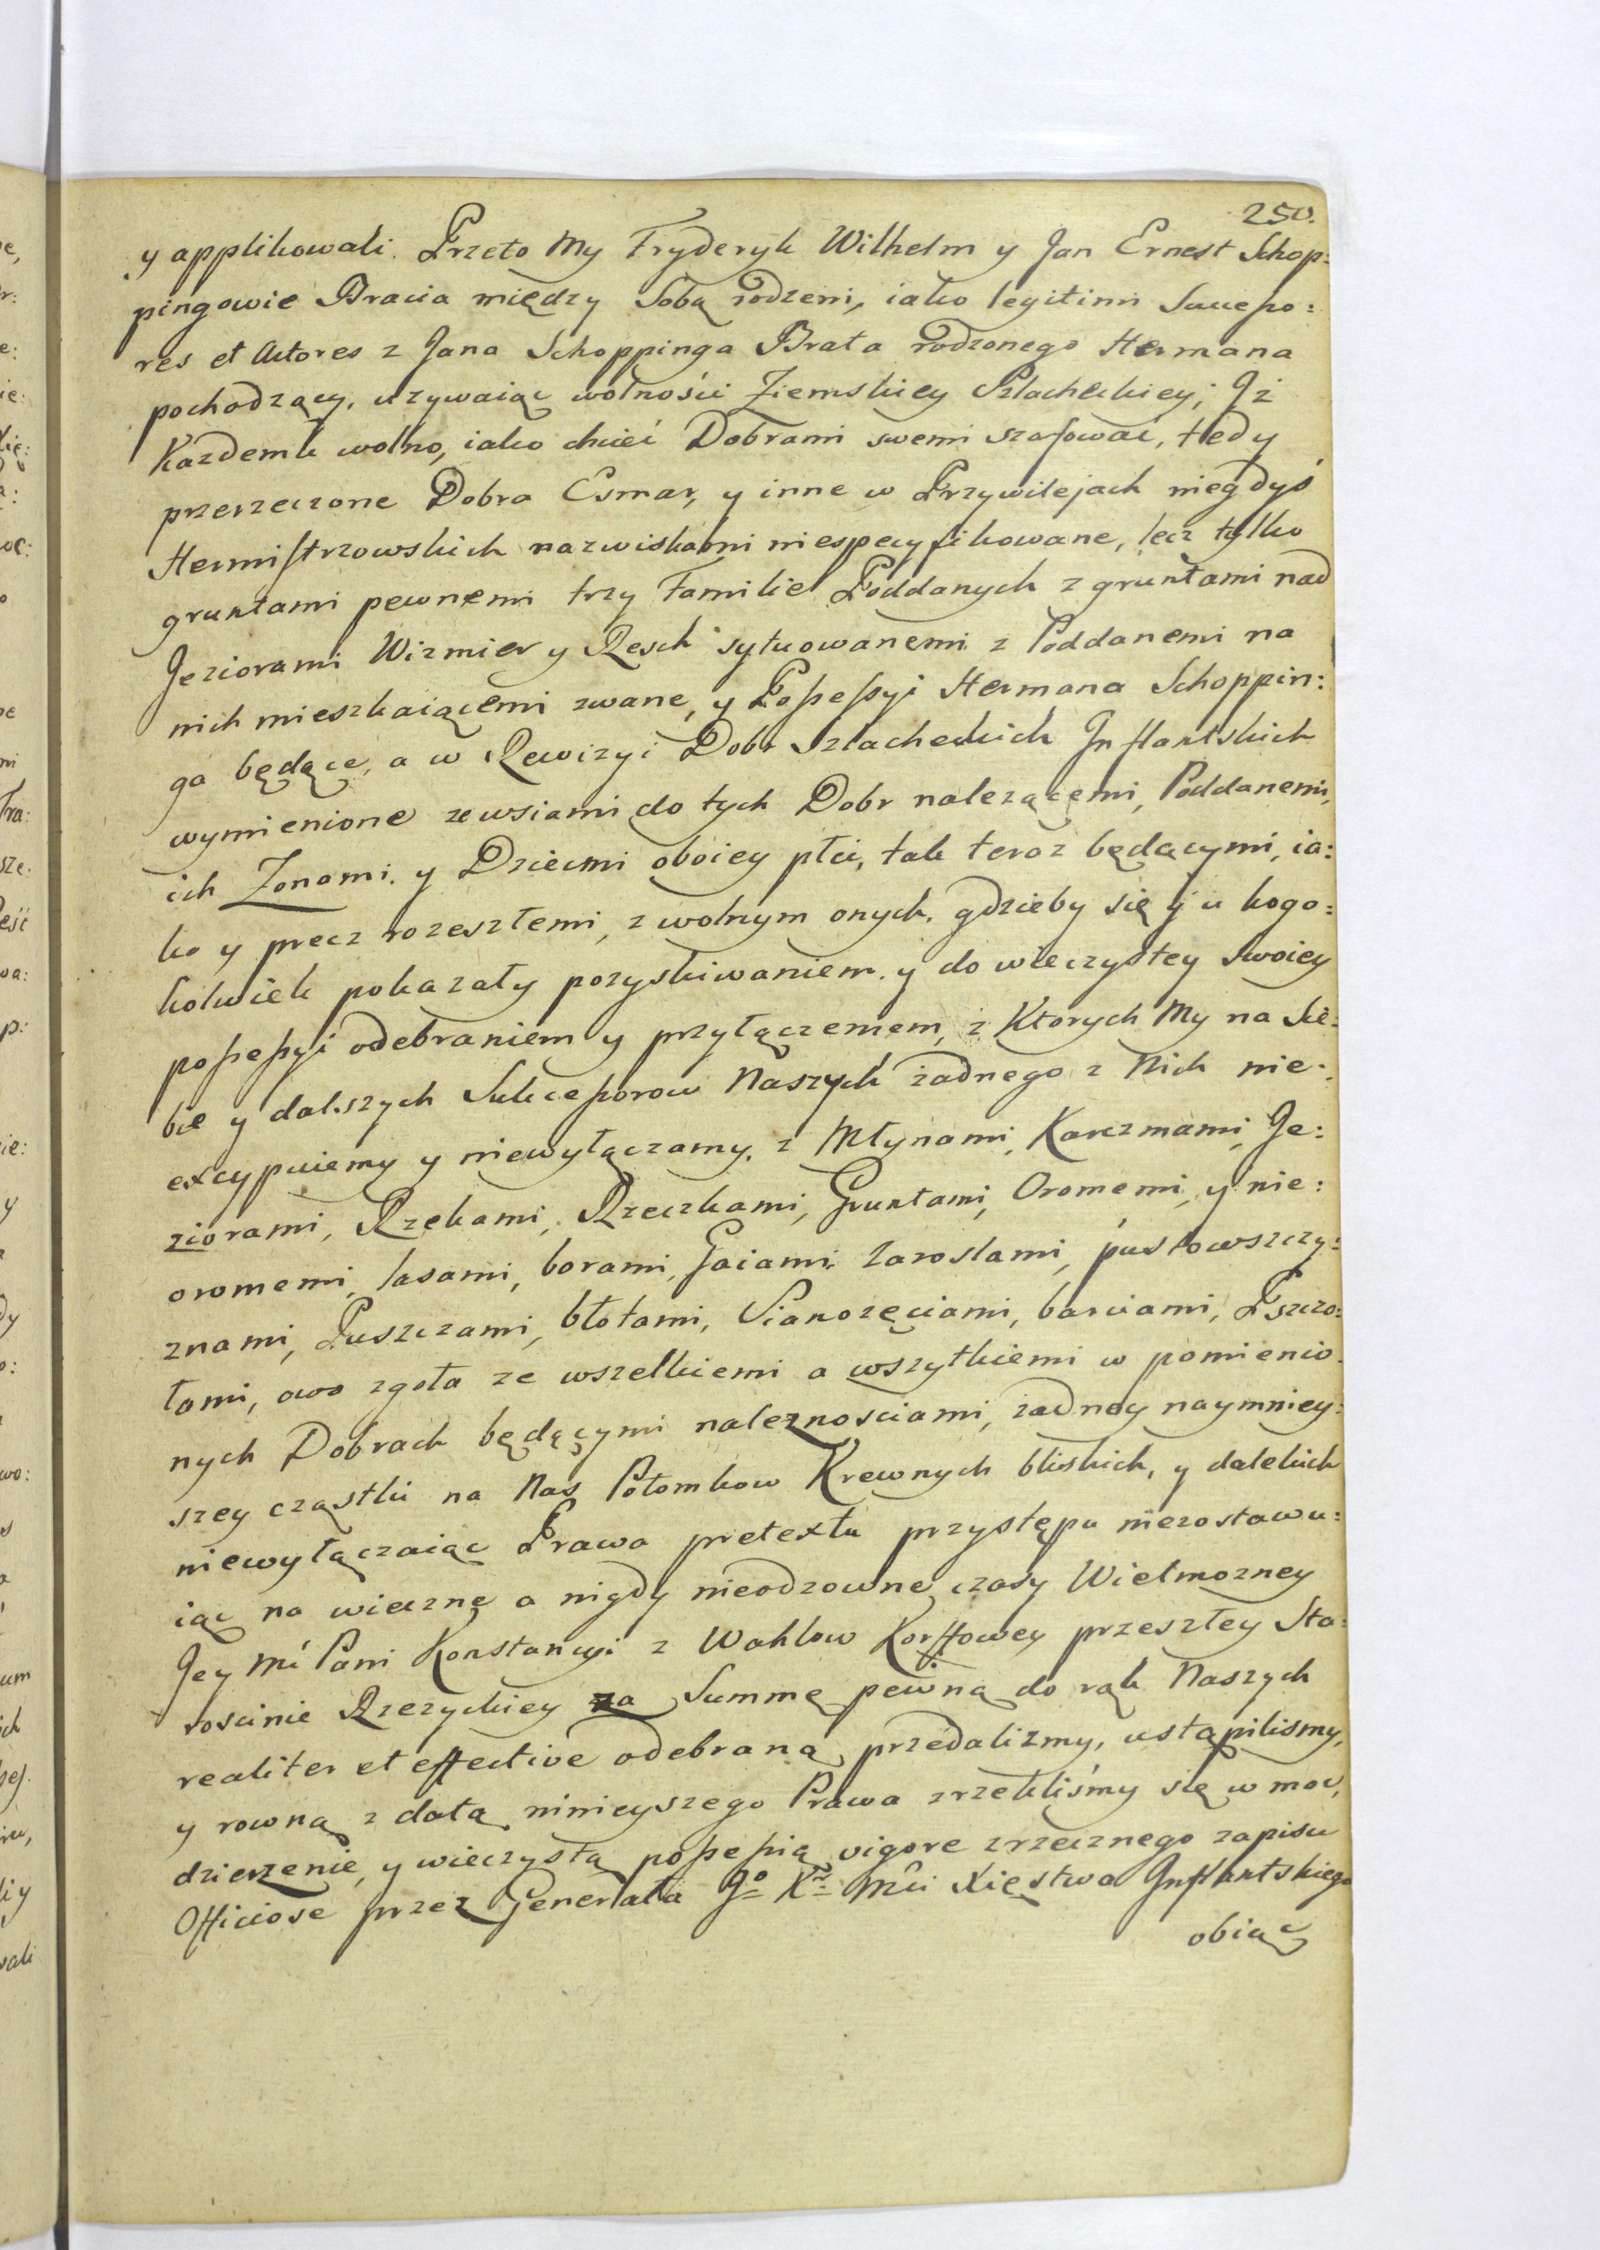 250.
y applikowali. Przeto My Fryderyk Wilhelm y Jan Ernest Schop:
pingowie Bracia między Sobą rodzeni, iako legitimi Succeßo:
res et Actores z Jana Schoppinga Brata rodzonego Hermana
pochodzący, uzywaiąc wolności Ziemskiey Szlacheckiey; Iż
Kazdemu wolno, iako chcieć Dobrami swemi szafować, tedy
przerzeczone Dobra Esmar, y inne w Przywilejach niegdyś
Hermistrzowskich nazwiskami niespecyfikowane, lecz tylko
gruntami pewnemi trzy Familie Poddanych z gruntami nad
Jeziorami Wizmier y Resch sytuowanemi z Poddanemi na
nich mieszkaiącemi zwane, y Poßeßyi Hermana Schoppin:
ga będące, a w Rewizyi Dobr Szlacheckich Inflantskich
wymienione ze wsiami do tych Dobr nalezącemi, Poddanemi,
ich Zonami y Dziecmi oboiey płci, tak teraz będącymi, ia:
ko y precz rozeszłemi, z wolnym onych, gdzieby się y u kogo:
kolwiek pokazały pozyskiwaniem y do wieczystey swoiey
poßeßyi odebraniem y przyłączeniem, z Ktorych My na sie:
bie y dalszych Sukceßorow Naszych żadnego z Nich nie:
excypuiemy y niewyłączamy, z Młynami, Karczmami, Je:
ziorami, Rzekami, Rzeczkami, Gruntami, Oromemi, y nie:
oromemi, lasami, borami, Gaiami, Zaroslami, pustowszczy:
znami, Puszczami, błotami, Sianozęciami, barciami, Pszczo:
łami, owo zgoła ze wszelkiemi a wszytkiemi w pomienio:
nych Dobrach będącymi naleznosciami, zadney naymniey:
szey cząstki na Nas Potomkow Krewnych bliskich, y dalekich
niewyłączaiąc Prawa pretextu przystępu niezostawu:
iąc na wieczne a nigdy nieodzowne czasy Wielmozney
Jey Mć Pani Konstancyi z Wahlow Korffowey przeszłey Sta:
rościnie Rzezyckiey za Summę pewną do rąk Naszych
realiter et effective odebraną przedalizmy, ustąpilismy,
y rowną z datą ninieyszego Prawa zrzekliśmy się w moc,
dzierzenie, y wieczystą poßeßią vigore zrzecznego zapisu
Officiose przez Generała Jo Kr Mci Xięstwa Inflantskiego
obiąć